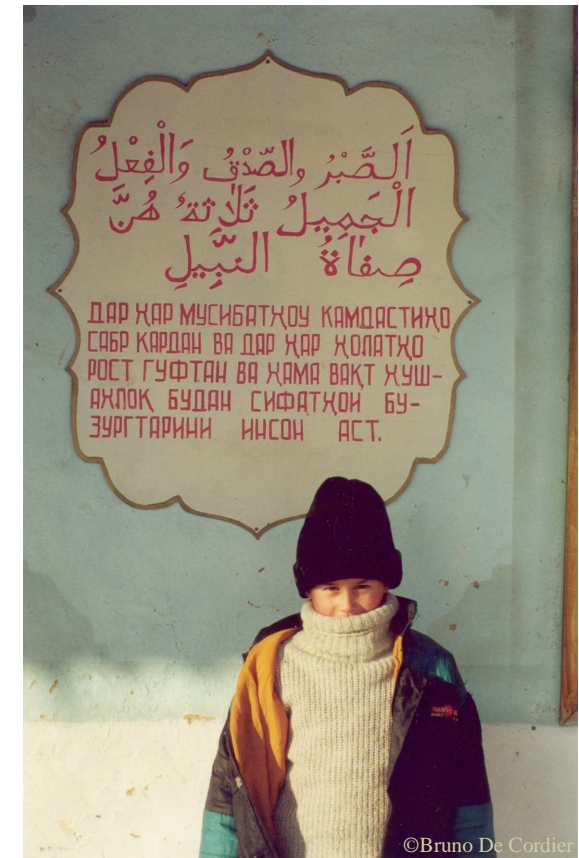 اَلصَّبْرُ والصّدْقُ وَالْفِعْلُ
الْجَمِيلُ ثَلَاثَةٌ هُنَّ
صِفَاةُ النَّبِيلِ
ДАР ҲАР МУСИБАТҲОУ КАМДАСТИҲО
САБР КАРДАН ВА ДАР ҲАР ҲОЛАТҲО
РОСТ ГУФТАН ВА ҲАМА ВАҚТ ХУШ-
АХЛОҚ БУДАН СИФАТҲОИ БУ-
ЗУРГТАРИНИ ИНСОН АСТ.
©Bruno De Cordier